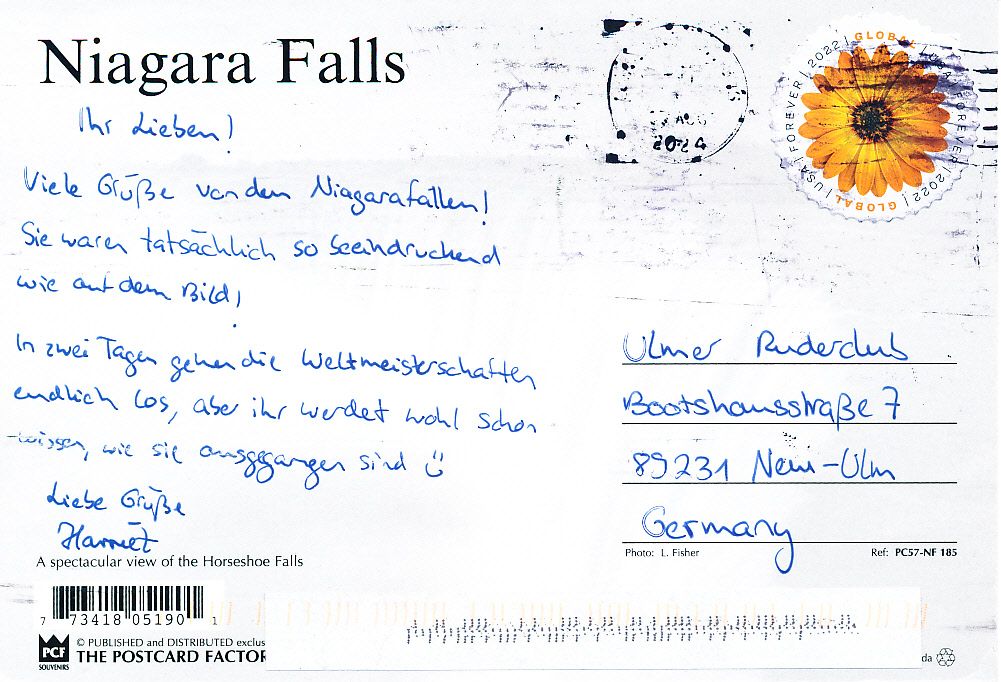 Niagara Falls
Ihr Lieben!
Viele Grüße von den Niagarafällen!
Sie waren tatsächlich so beeindruckend
wie auf dem Bild!
In zwei Tagen gehen die Weltmeisterschaften
endlich los, aber ihr werdet wohl schon
wissen, wie sie ausgegangen sind
Liebe Grüße
Harriet
A spectacular view of the Horseshoe Falls
7 73418 05190 1
PCF
SOUVENIRS
© PUBLISHED and DISTRIBUTED exclus
THE POSTCARD FACTOR
2024
GLOBAL USA FOREVER 2022 GLOBAL USA FOREVER 2022
Ulmer Ruderclub
Bootshausstraße 7
89231 Neu-Ulm
Germany
Photo: L. Fisher
Ref: PC57-NF 185
da